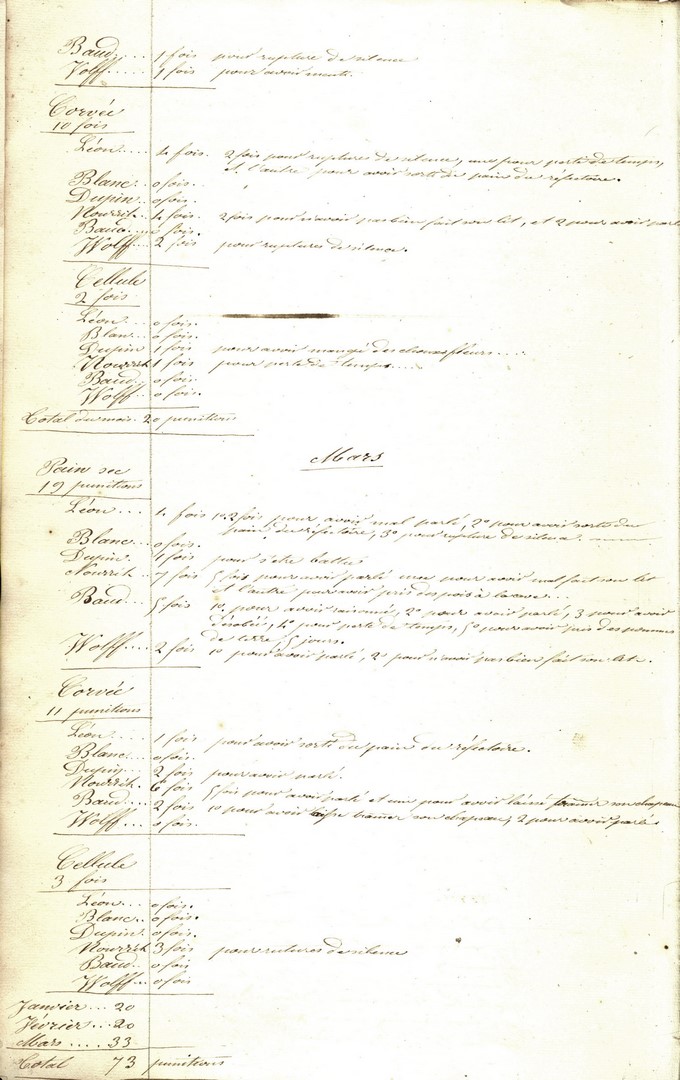 Baud..... 1 fois pour rupture de silence
Wolff...... 1 fois pour avoir menti.
Corvée
10 fois
Léon..... 4 fois. 2 fois pour ruptures de silence, une pour perte de temps,
et l'autre pour avoir sorti du pain du réfectoire.
Blanc... 0 fois.
Dupin... 0 fois.
Nourrit.. 4 fois. 2 fois pour n'avoir pas bien fait son lit, et 2 pour avoir parlé
Baud.... fois.
Wolff... 2 fois pour ruptures de silence.
Cellule
2 fois
Léon.... 0 fois.
Blan... 0 fois.
Dupin 1 fois pour avoir mangé des choux fleurs.....
Nourrit 1 fois pour perte de temps.....
Baud.. 0 fois.
Wolff... 0 fois.
Total du mois. 20 punitions
Mars
Pain sec
19 punitions
Léon.... 4 fois 1º 2 fois pour avoir mal parlé, 2º pour avoir sorti du
pain du réfectoire, 3º pour rupture de silence.
Blanc... 0 fois.
Dupin. 1 fois pour s'etre battu
Nourrit.. 7 fois 5 fois pour avoir parlé une pour avoir mal fait son lit
et l'autre pour avoir pris des pois à la cave...
Baud... 5 fois 1º pour avoir raisonné, 2º pour avoir parlé, 3 pour avoir
désobéi, 4º pour perte de temps, 5º pour avoir pris des pommes
de terre, 5 jours.
Wolff.... 2 fois 1º pour avoir parlé, 2º pour n'avoir pas bien fait son lit.
Corvée
11 punitions
Léon... 1 fois pour avoir sorti du pain du réfectoire.
Blanc... 0 fois.
Dupin... 2 fois pour avoir parlé.
Nourrit. 6 fois 5 fois pour avoir parlé et une pour avoir laissé trainer son chapeau
Baud... 2 fois 1º pour avoir laissé trainer son chapeau, 2 pour avoir parlé.
Wolff... 0 fois.
Cellule
3 fois
Léon... 0 fois.
Blanc.. 0 fois.
Dupin.. 0 fois.
Nourrit 3 fois pour rutures de silence
Baud.. 0 fois
Wolff... 0 fois
Janvier... 20
Février... 20
Mars..... 33
Total 73 punitions